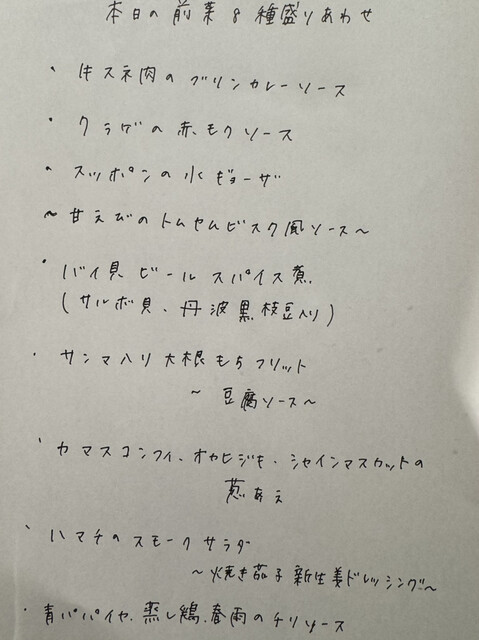 本日の前菜8種盛りあわせ
・牛スネ肉のグリンカレーソース
・クラゲの赤モクソース
・スッポンの水ギョーザ
~甘えびのトムヤムビスク風ソース~
・バイ貝ビールスパイス煮
(サルボ貝、丹波黒枝豆入り)
・サンマハリ大根もちフリット
~豆腐ソース~
・カマスコンフィ、オカヒジキ、シャインマスカットの
葱あえ
・ハマチのスモークサラダ
~焼き茄子新生姜ドレッシング~
・青パパイヤ、蒸し鶏、春雨のチリソース